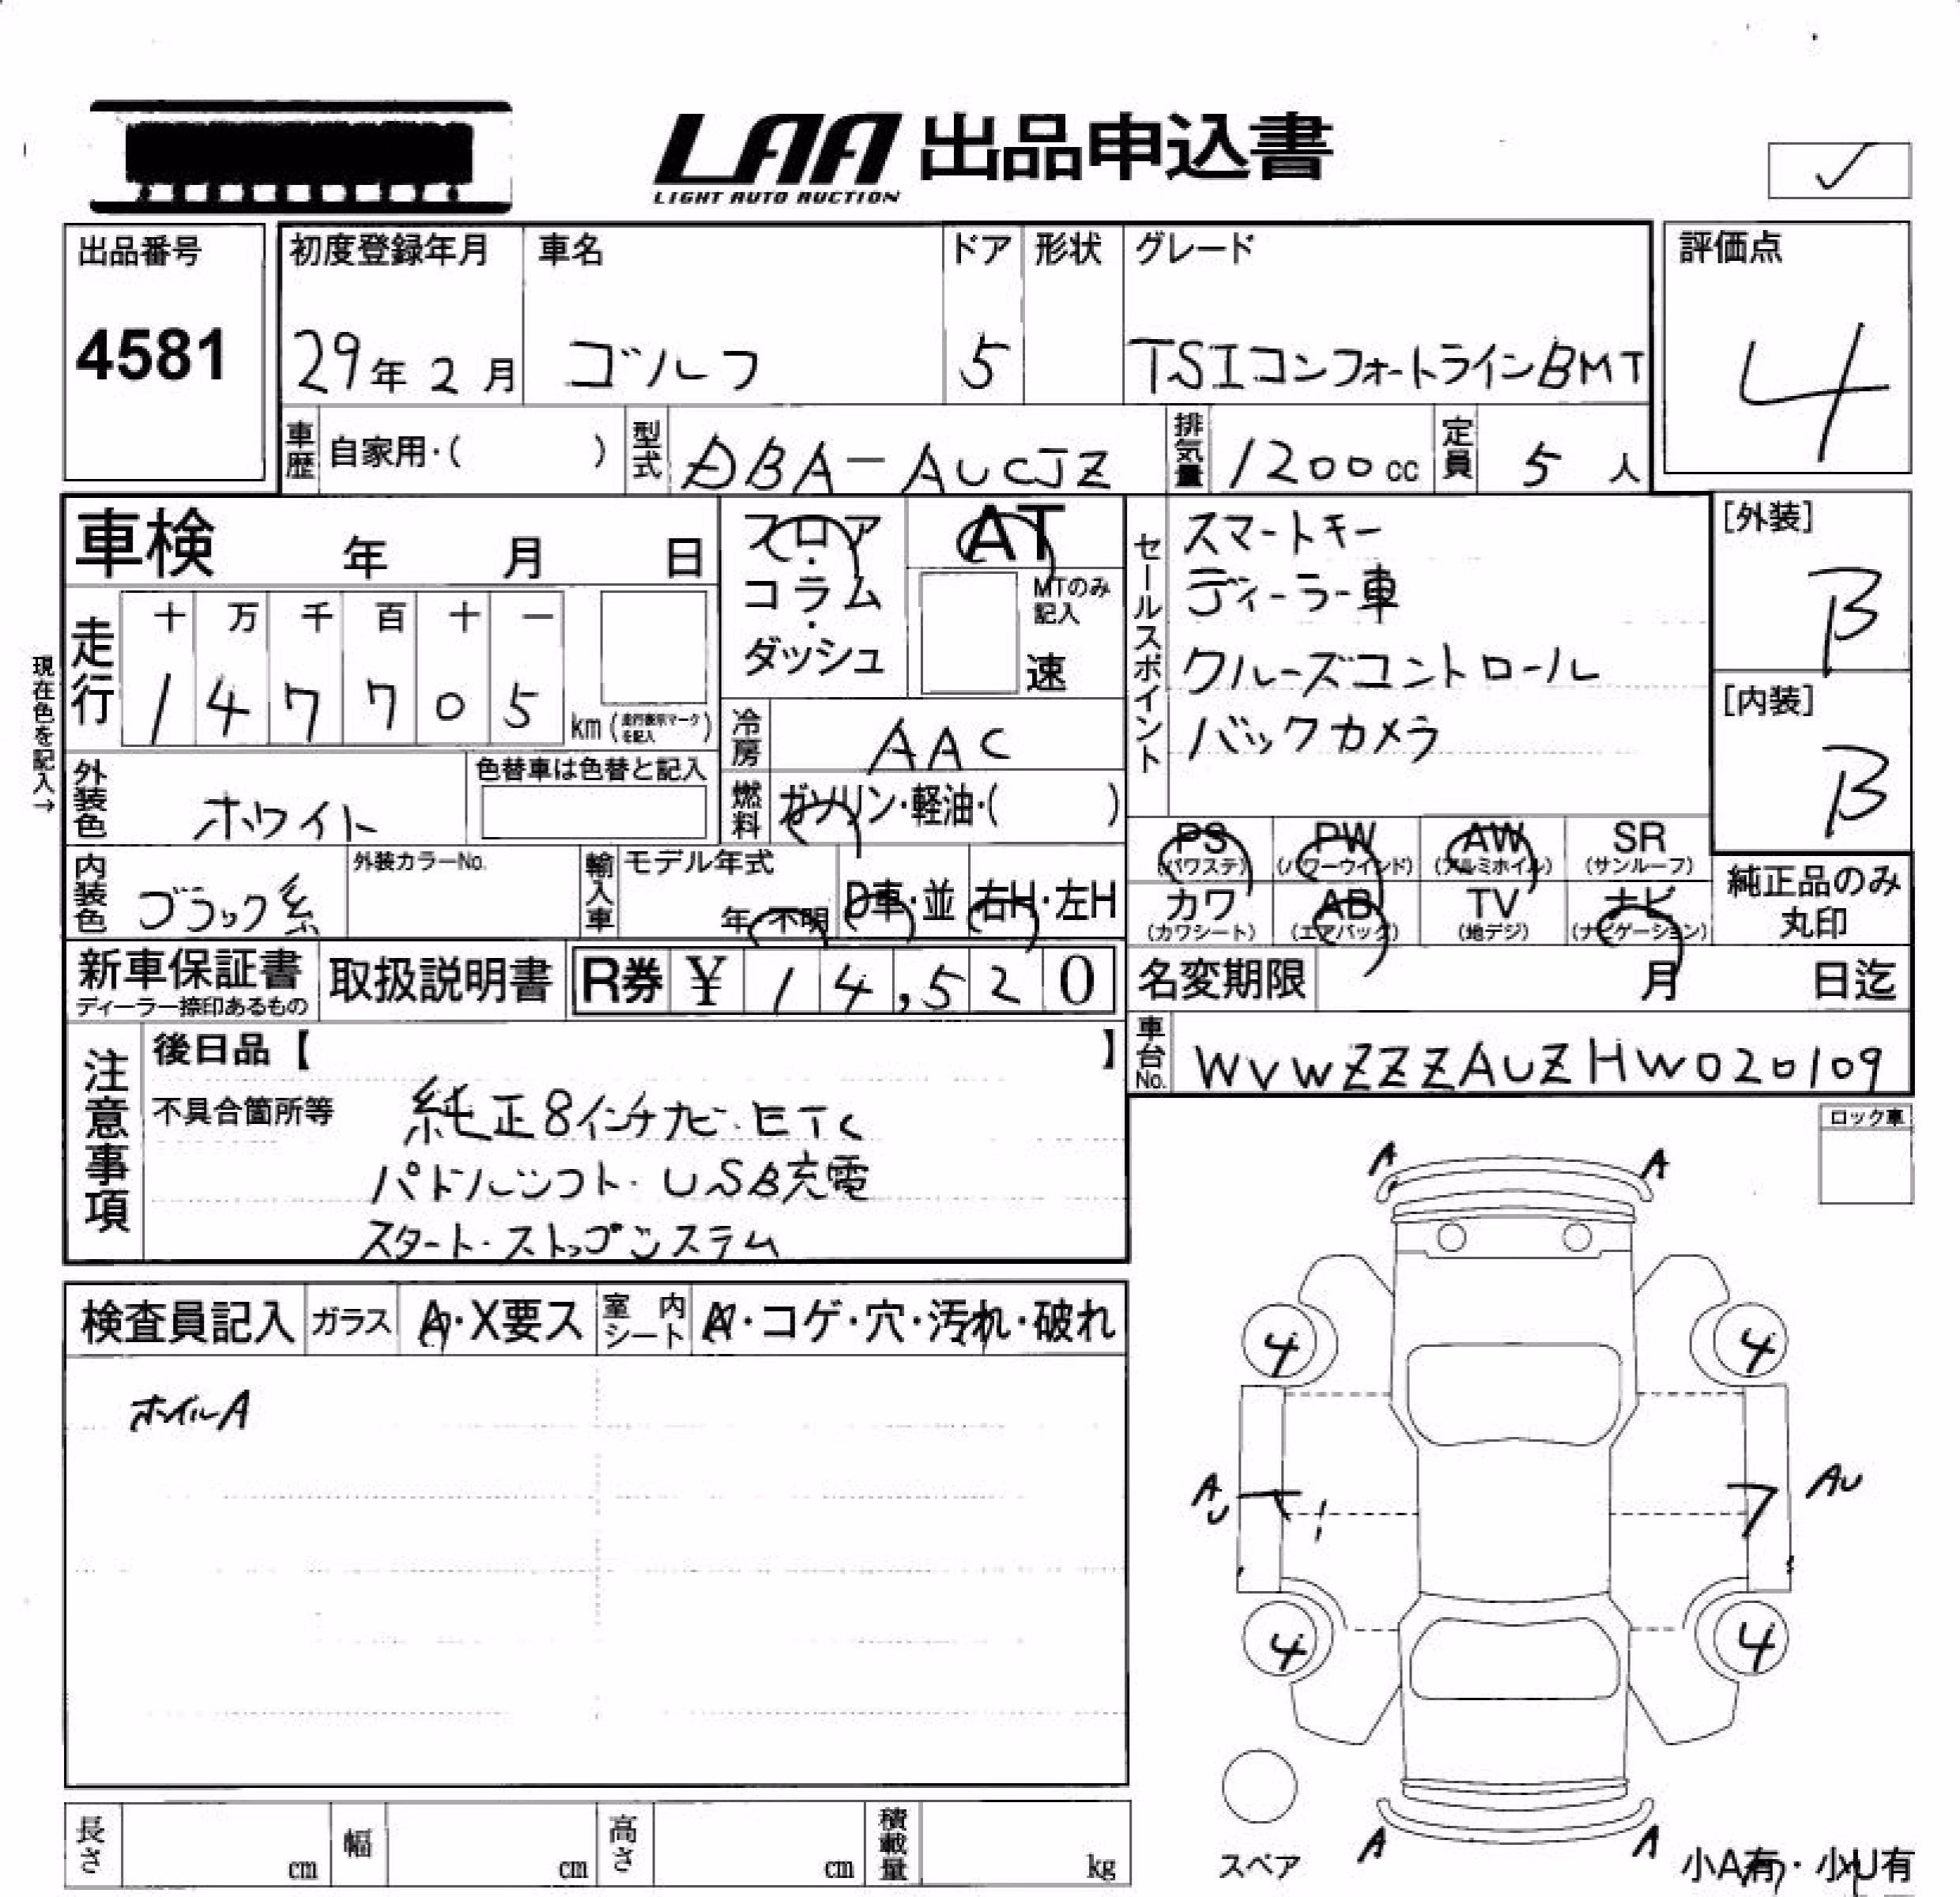 LAA 出品申込書
LIGHT AUTO AUCTION
✓
出品番号
4581
初度登録年月
29年 2月
車名
ゴルフ
ドア
5
形状
グレード
TSIコンフォートラインBMT
評価点
4
車歴 自家用・( )
型式 DBA-AUCJZ
排気量 1200cc
定員 5人
車検 年 月 日
フロア・コラム・ダッシュ
AT
MTのみ記入
速
セールスポイント
スマートキー
ディーラー車
クルーズコントロール
バックカメラ
[外装]
B
[内装]
B
現在色を記入→
走行
十 万 千 百 十 一
1 4 7 7 0 5 km (走行表示マークを記入)
冷房 AAC
燃料 ガソリン・軽油・( )
外装色 ホワイト
色替車は色替と記入
内装色 ブラック系
外装カラーNo.
輸入車 モデル年式
年・不明 D車・並 右H・左H
PS (パワステ)
PW (パワーウインド)
AW (アルミホイル)
SR (サンルーフ)
カワ (カワシート)
AB (エアバッグ)
TV (地デジ)
ナビ (ナビゲーション)
純正品のみ丸印
新車保証書
ディーラー捺印あるもの
取扱説明書
R券 ¥ 14,520
名変期限 月 日迄
車台No. WVWZZZAUZHW020109
注意事項
後日品【 】
不具合箇所等
純正8インチナビ・ETC
パドルシフト・USB充電
スタート・ストップシステム
ロック車
検査員記入 ガラス A・X要ス 室内シート A・コゲ・穴・汚れ・破れ
ホイルA
A A
4 4
AU AU
4 4
A A
スペア
小A有・小U有
長さ cm 幅 cm 高さ cm 積載量 kg